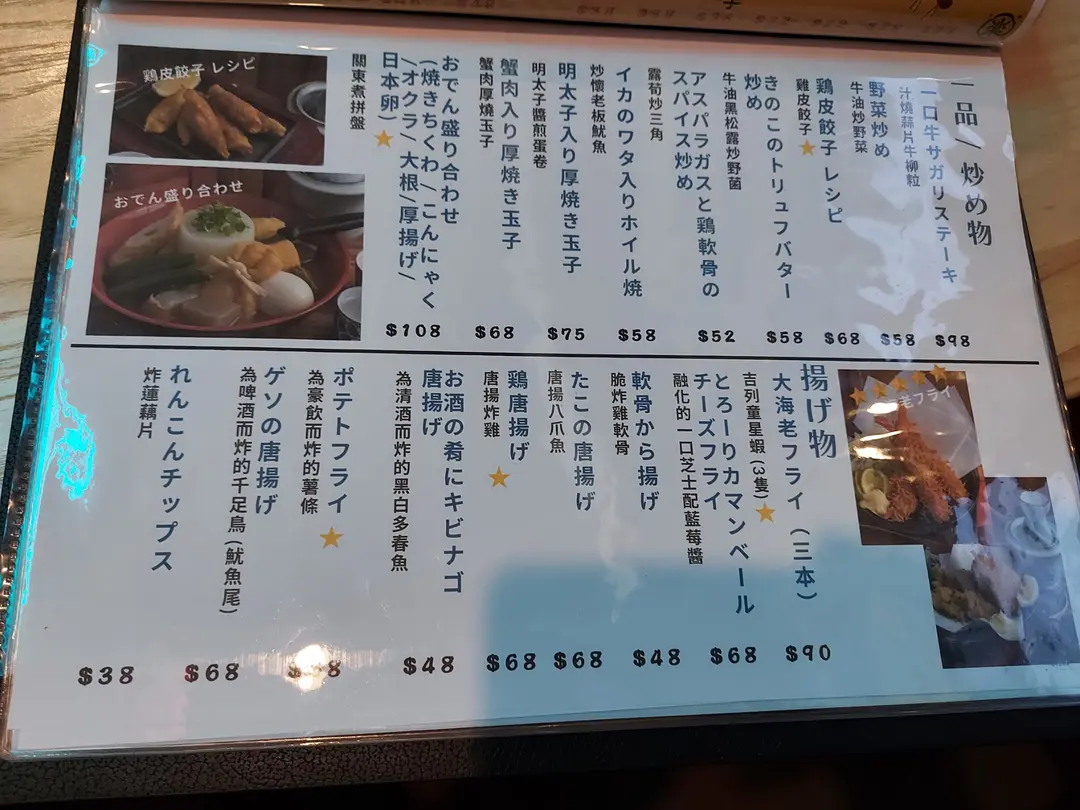 一品/炒め物
一口牛サガリステーキ
汁燒蒜片牛柳粒
$98
野菜炒め
牛油炒野菜
$58
鶏皮餃子 レシピ
雞皮餃子
$68
きのこのトリュフバター
炒め
牛油黑松露炒野菌
$58
アスパラガスと鶏軟骨の
スパイス炒め
露荀炒三角
$52
イカのワタ入りホイル焼
炒懷老板魷魚
$58
明太子入り厚焼き玉子
明太子醬煎蛋卷
$75
蟹肉入り厚焼き玉子
蟹肉厚燒玉子
$68
おでん盛り合わせ
(焼きちくわ/こんにゃく
/オクラ/大根/厚揚げ/
日本卵)
關東煮拼盤
$108
鶏皮餃子 レシピ
おでん盛り合わせ
揚げ物
大海老フライ (三本)
吉列童星蝦 (3隻)
$90
とろーりカマンベール
チーズフライ
融化的一口芝士配藍莓醬
$68
軟骨から揚げ
脆炸雞軟骨
$48
たこの唐揚げ
唐揚八爪魚
$68
鶏唐揚げ
唐揚炸雞
$68
お酒の肴にキビナゴ
唐揚げ
為清酒而炸的黑白多春魚
$48
ポテトフライ
為豪飲而炸的薯條
ゲソの唐揚げ
為啤酒而炸的千足鳥 (魷魚尾)
$68
れんこんチップス
炸蓮藕片
$38
老フライ